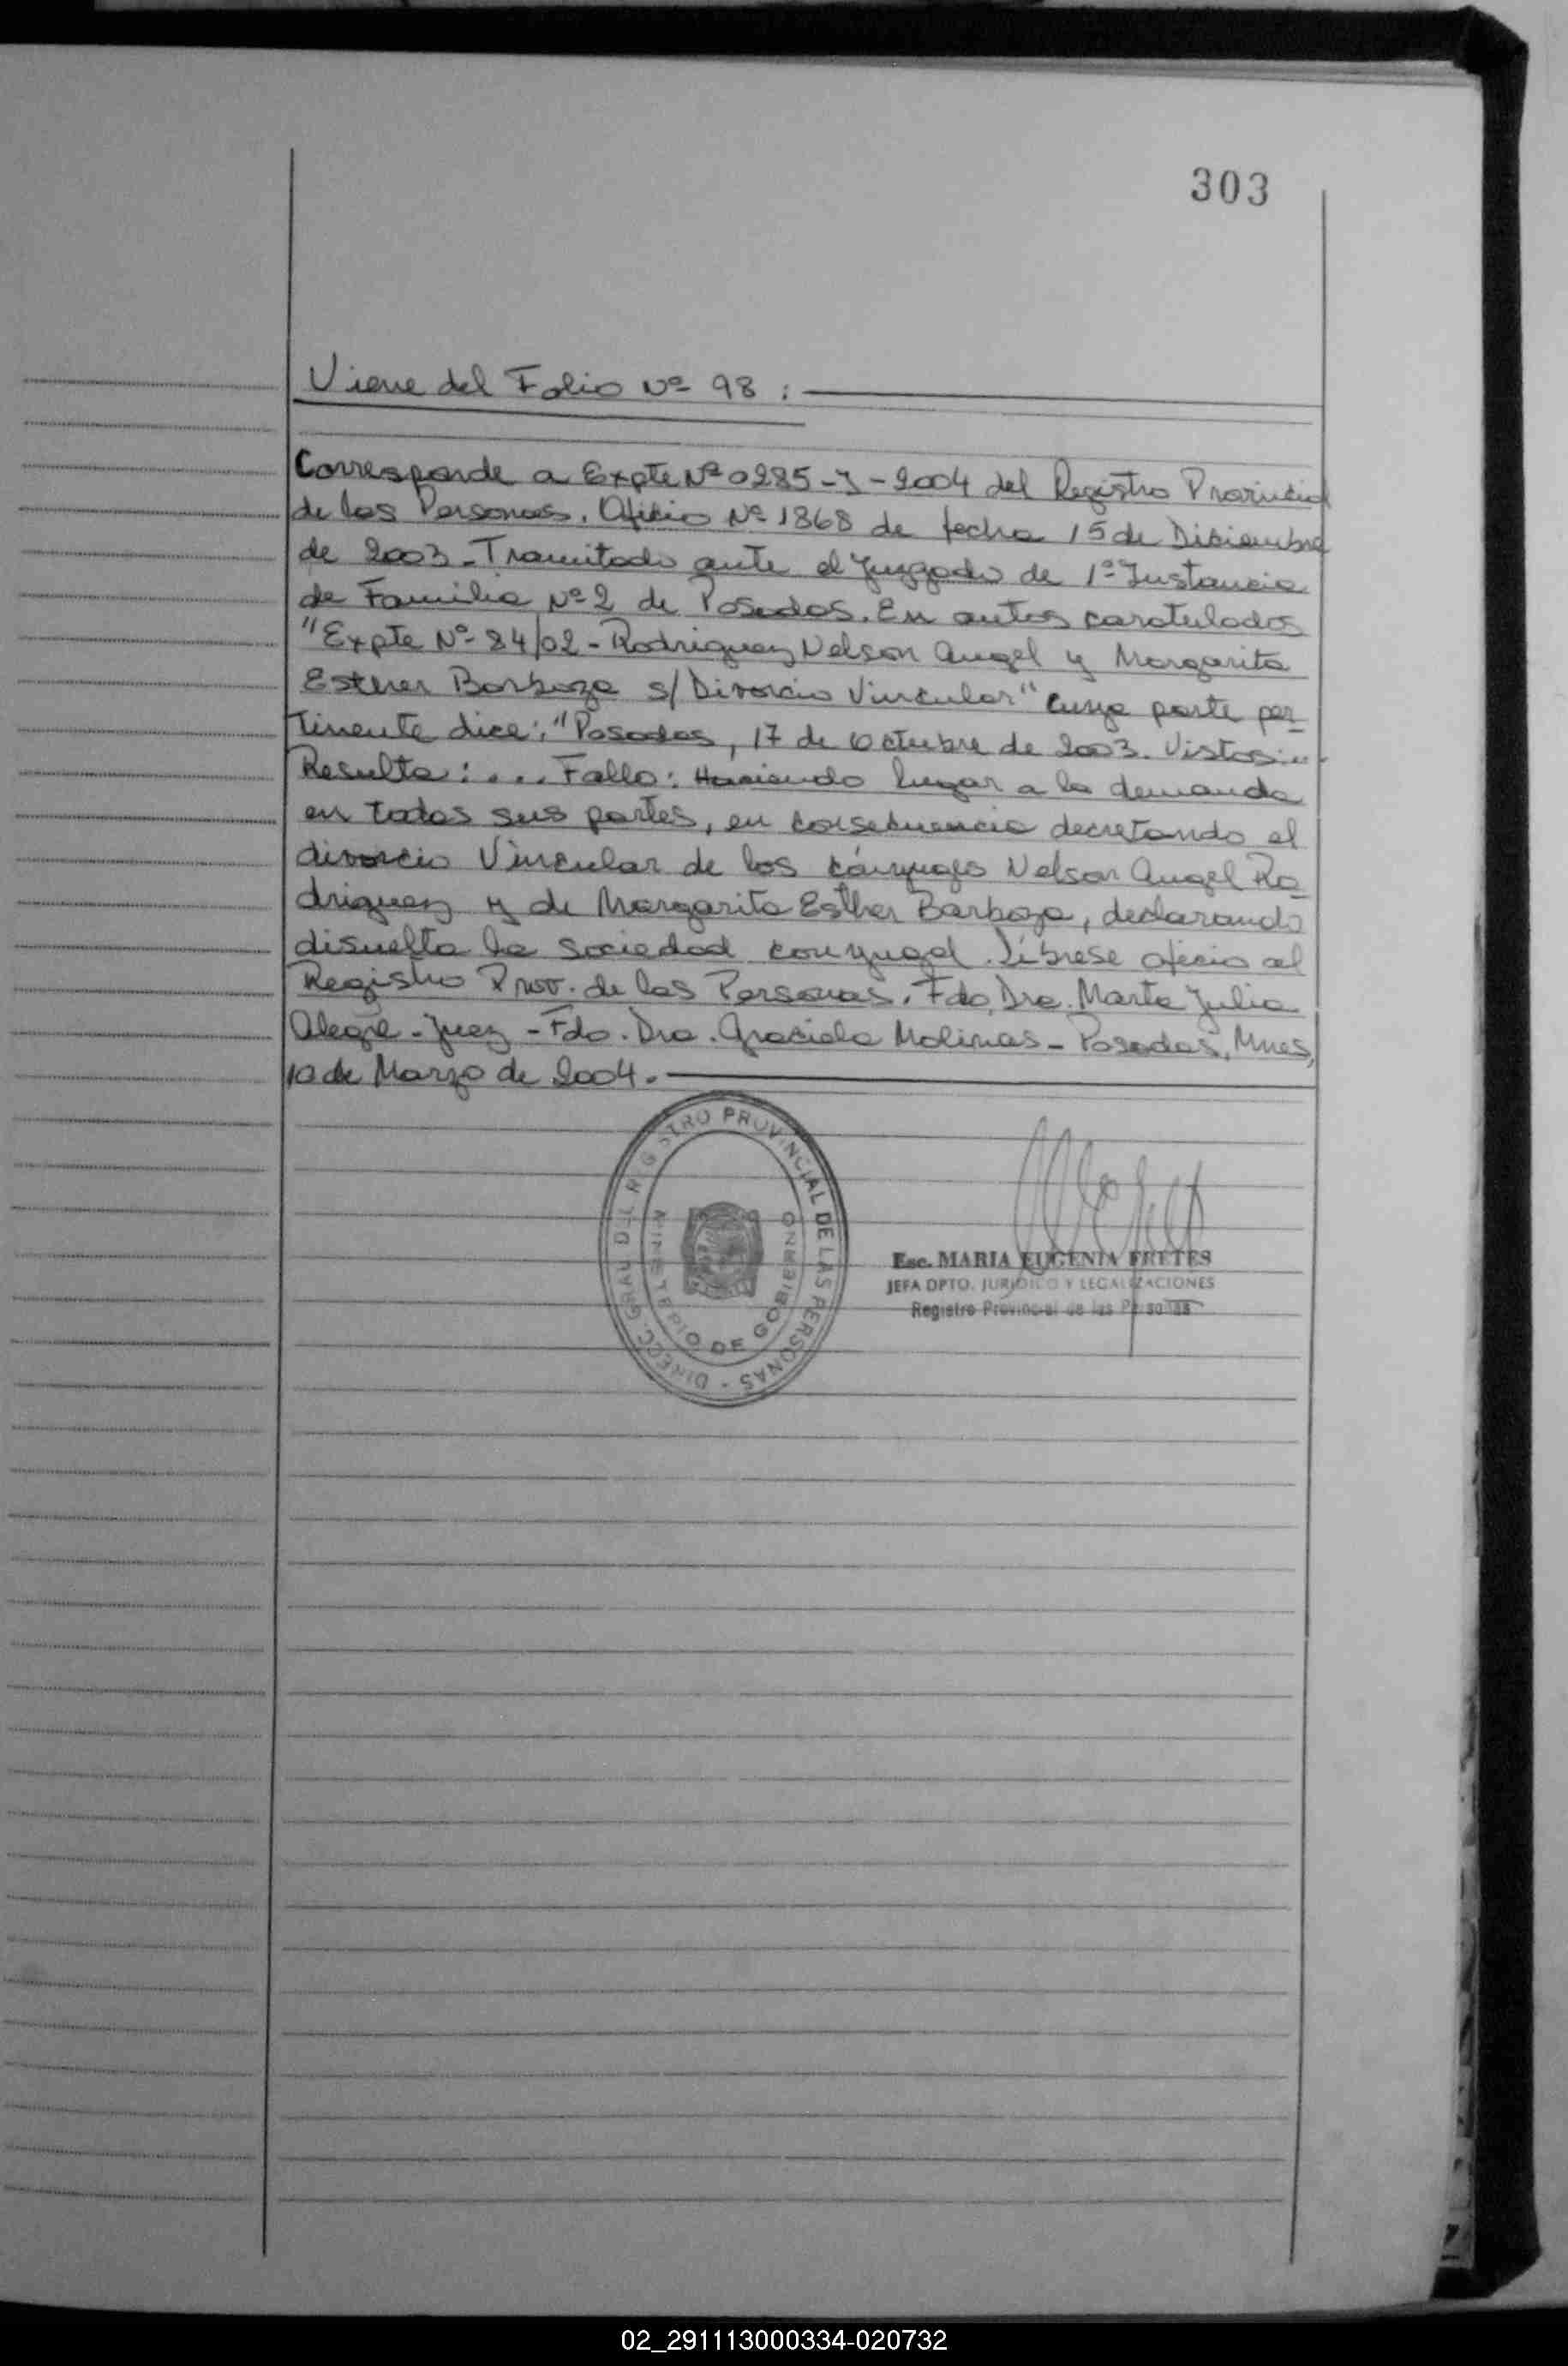 303
Viene del Folio Nº 98 :
Corresponde a Expte Nº 0285-J-2004 del Registro Provincial
de las Personas. Oficio Nº 1868 de fecha 15 de Diciembre
de 2003 - Tramitado ante el Juzgado de 1º Instancia
de Familia Nº 2 de Posadas. En autos caratulados
"Expte Nº 84/02 - Rodriguez Nelson Angel y Margarita
Esther Barboza s/ Divorcio Vincular" cuya parte per
tinente dice: "Posadas, 17 de Octubre de 2003. Vistos:...
Resulta: ... Fallo: Haciendo lugar a la demanda
en todas sus partes, en consecuencia decretando el
divorcio Vincular de los cónyuges Nelson Angel Ro
driguez y de Margarita Esther Barboza, declarando
disuelta la sociedad conyugal. Líbrese oficio al
Registro Prov. de las Personas. Fdo. Dra. Marta Julia
Alegre - Juez - Fdo. Dra. Graciela Molinas - Posadas, Mnes,
10 de Marzo de 2004.
DIRECC. GRAL DEL REGISTRO PROVINCIAL DE LAS PERSONAS -
MINISTERIO DE GOBIERNO
Esc. MARIA EUGENIA FRETES
JEFA DPTO. JURIDICO Y LEGALIZACIONES
Registro Provincial de las Personas
02_291113000334-020732